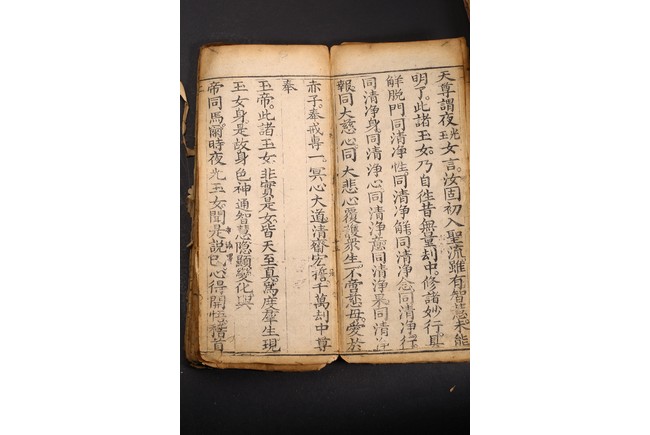 天尊謂夜光玉女言。汝固初入聖流。雖有智慧未能
明了。此諸玉女。乃自徃昔無量刼中。修諸妙行。具
解脫門同清淨性同清淨解同清淨念同清淨行
同清淨身同清淨心同清淨蔭同清淨果同清淨
報同大慈心同大悲心覆護衆生。不啻慈母。愛於
赤子。奉戒專一。冥心大道清齋宏擔千萬刼中尊
奉
玉帝。此諸玉女。非實是女皆天至真。爲度羣生現
玉女身。是故身色神通智慧隱顯變化與
帝同焉爾時夜光玉女聞是說已。心得開悟稽首